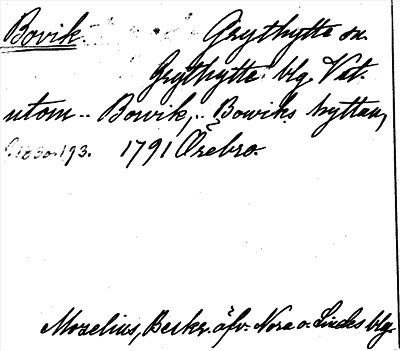 Bovik. Grythytte sn.
Grythytte blg. Vet.
utom .. Bowik, .. Bowiks hyttan,
193. 1791 Örebro.
Mozelius, Beskr. öfv. Nora o. Lindes blg.